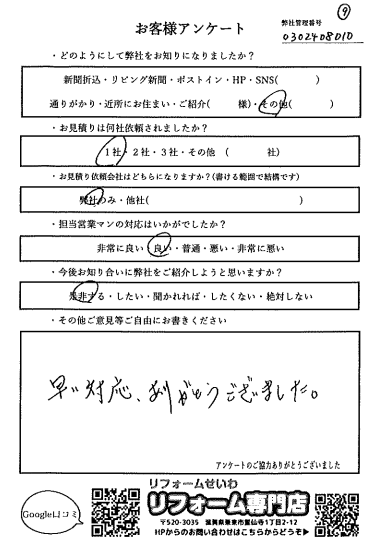 ⑨
お客様アンケート
弊社管理番号
0302408010
・どのようにして弊社をお知りになりましたか？
新聞折込・リビング新聞・ポストイン・HP・SNS(　　　　)
通りがかり・近所にお住まい・ご紹介(　　　様)・その他(　　　)
・お見積りは何社依頼されましたか？
1社・2社・3社・その他　(　　　　社)
・お見積り依頼会社はどちらになりますか？(書ける範囲で結構です)
弊社のみ・他社(　　　　　　　　　　)
・担当営業マンの対応はいかがでしたか？
非常に良い・良い・普通・悪い・非常に悪い
・今後お知り合いに弊社をご紹介しようと思いますか？
是非する・したい・聞かれれば・したくない・絶対しない
・その他ご意見等ご自由にお書きください
早い対応、ありがとうございました。
アンケートのご協力ありがとうございました
Google口コミ
リフォームせいわ
リフォーム専門店
〒520-3035　滋賀県栗東市霊仙寺1丁目2-12
HPからのお問い合わせはこちらからどうぞ▶